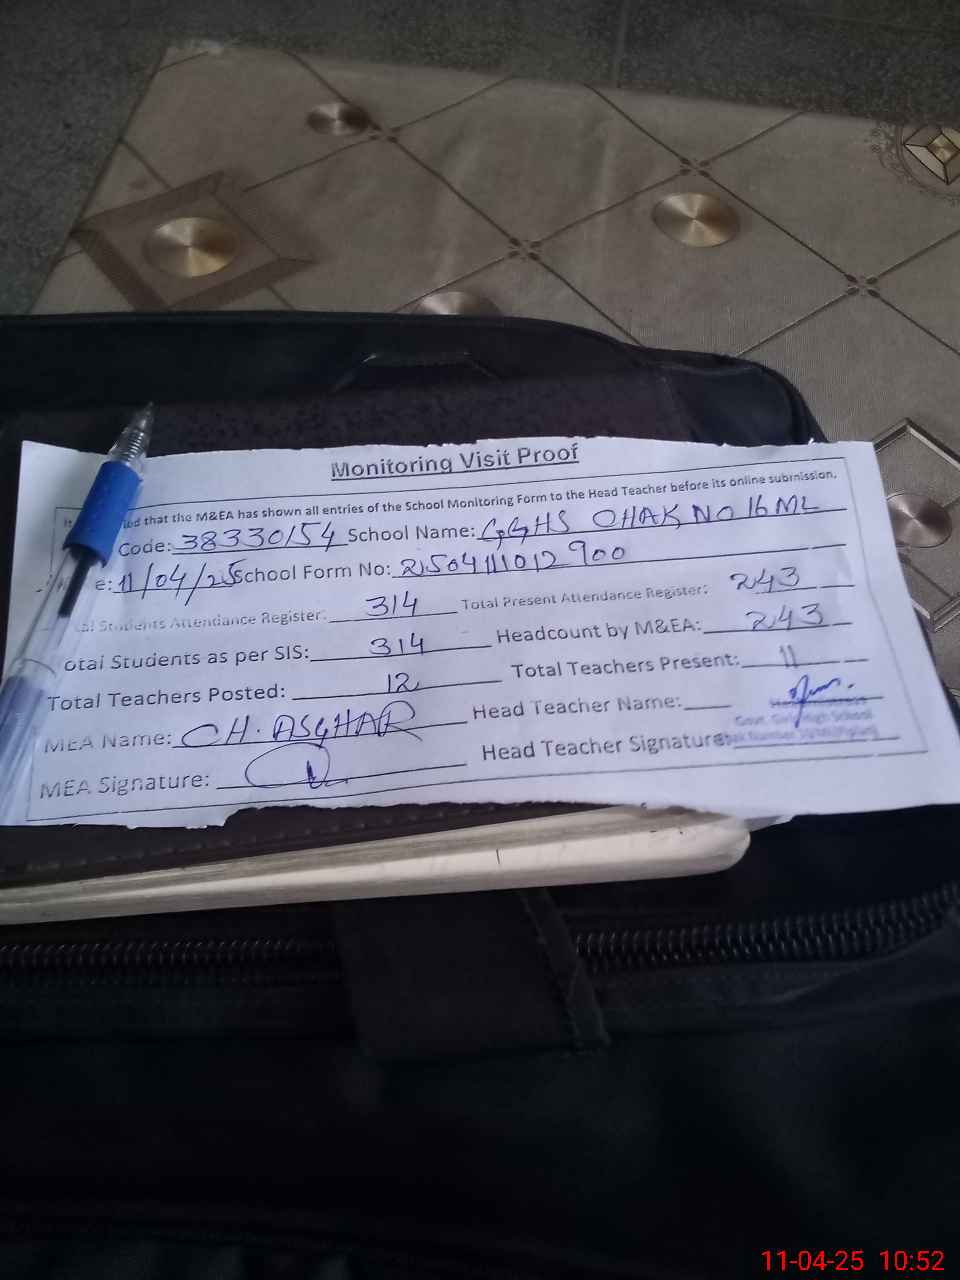 Monitoring Visit Proof
that the M&EA has shown all entries of the School Monitoring Form to the Head Teacher before its online submission.
Code: 38330154 School Name: GGHS CHAK NO 16 ML
11/04/25 School Form No: 2504111012900
Students Attendance Register: 314 Total Present Attendance Register: 243
Total Students as per SIS: 314 Headcount by M&EA: 243
Total Teachers Posted: 12 Total Teachers Present: 11
MEA Name: CH. ASGHAR Head Teacher Name:
Govt. Girls High School
MEA Signature: Head Teacher Signature:
11-04-25 10:52